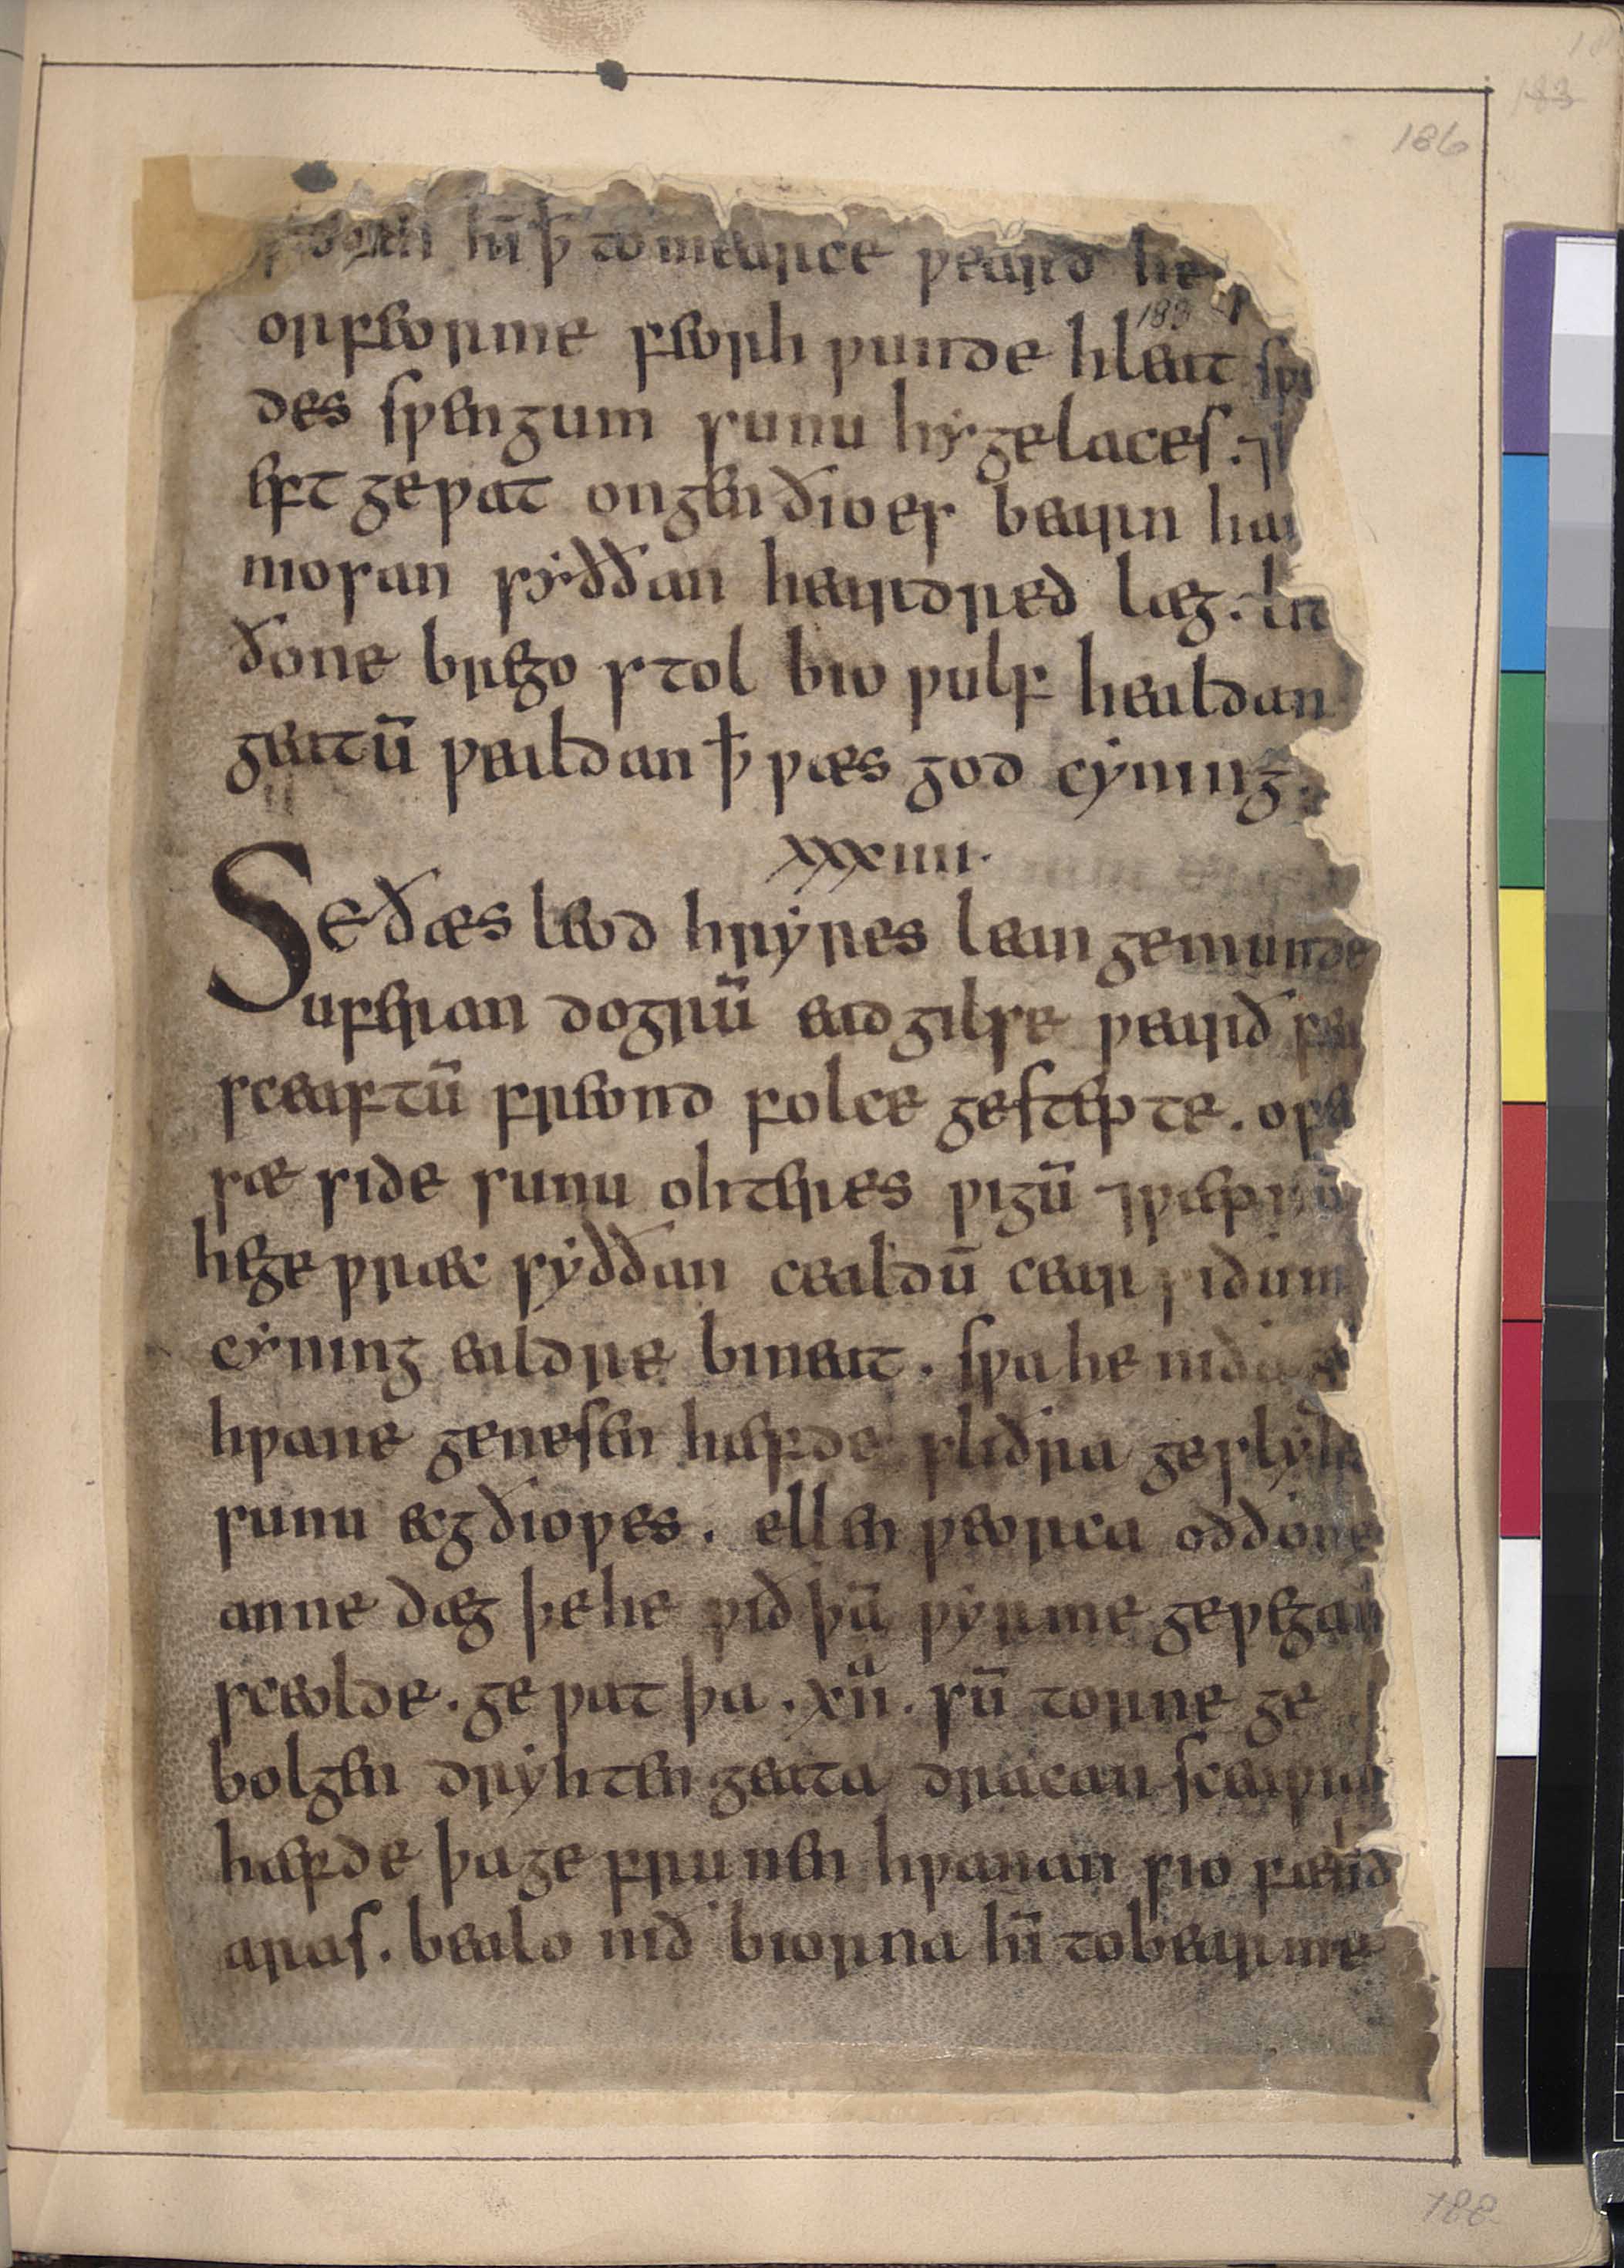 186
183
him ꝥ to mearce wearð he
orfeorme feorh wunde hleat
183
des swengum sunu hygelaces. ⁊
eft gewat ongenðioes bearn
mosan syððan heardred læg. let
ðone brego stol bio wulf healdan
geatū wealdan ꝥ wæs god cyning.
xxxiiii.
Se ðæs leod hryres lean gemunde
uferan dogrū eadgilse wearð fea
sceaftū freond folce gestepte. ofer
sæ side sunu ohteres wigū ⁊ wæpnū
he ge wræc syððan cealdū cear siðum
cyning ealdre bineat. swa he niða ge
hwane genesen hæfde sliðra geslyhta
sunu ecgðiowes. ellen weorca oð ðone
anne dæg þe he wið þā wyrme gewegan
sceolde. ge wat þa .xiia. sū torne ge
bolgen dryhten geata dracan sceawian
hæfde þa ge frunen hwanan sio fæhð
aras. bealo nið biorna hī to bearme
188